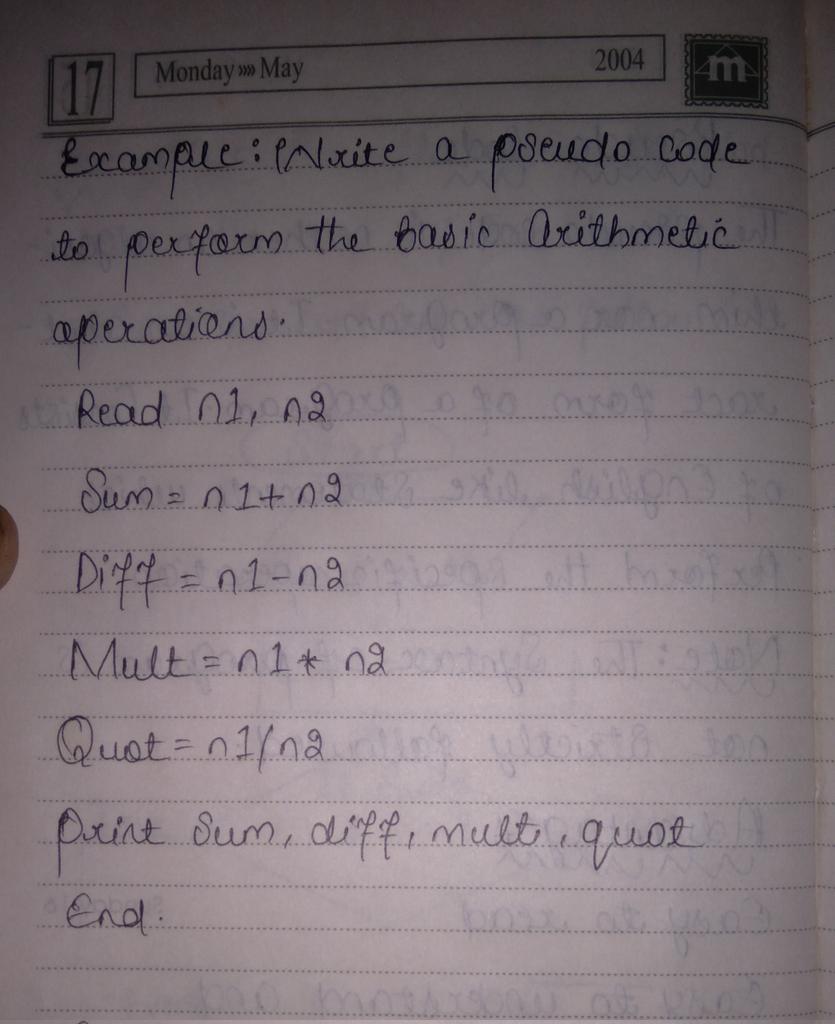 17 Monday »» May 2004 m
Example: Write a pseudo code
to perform the basic Arithmetic
operations.
Read n1, n2
Sum = n1+n2
Diff = n1-n2
Mult = n1* n2
Quot = n1/n2
Print Sum, diff, mult, quot
End.